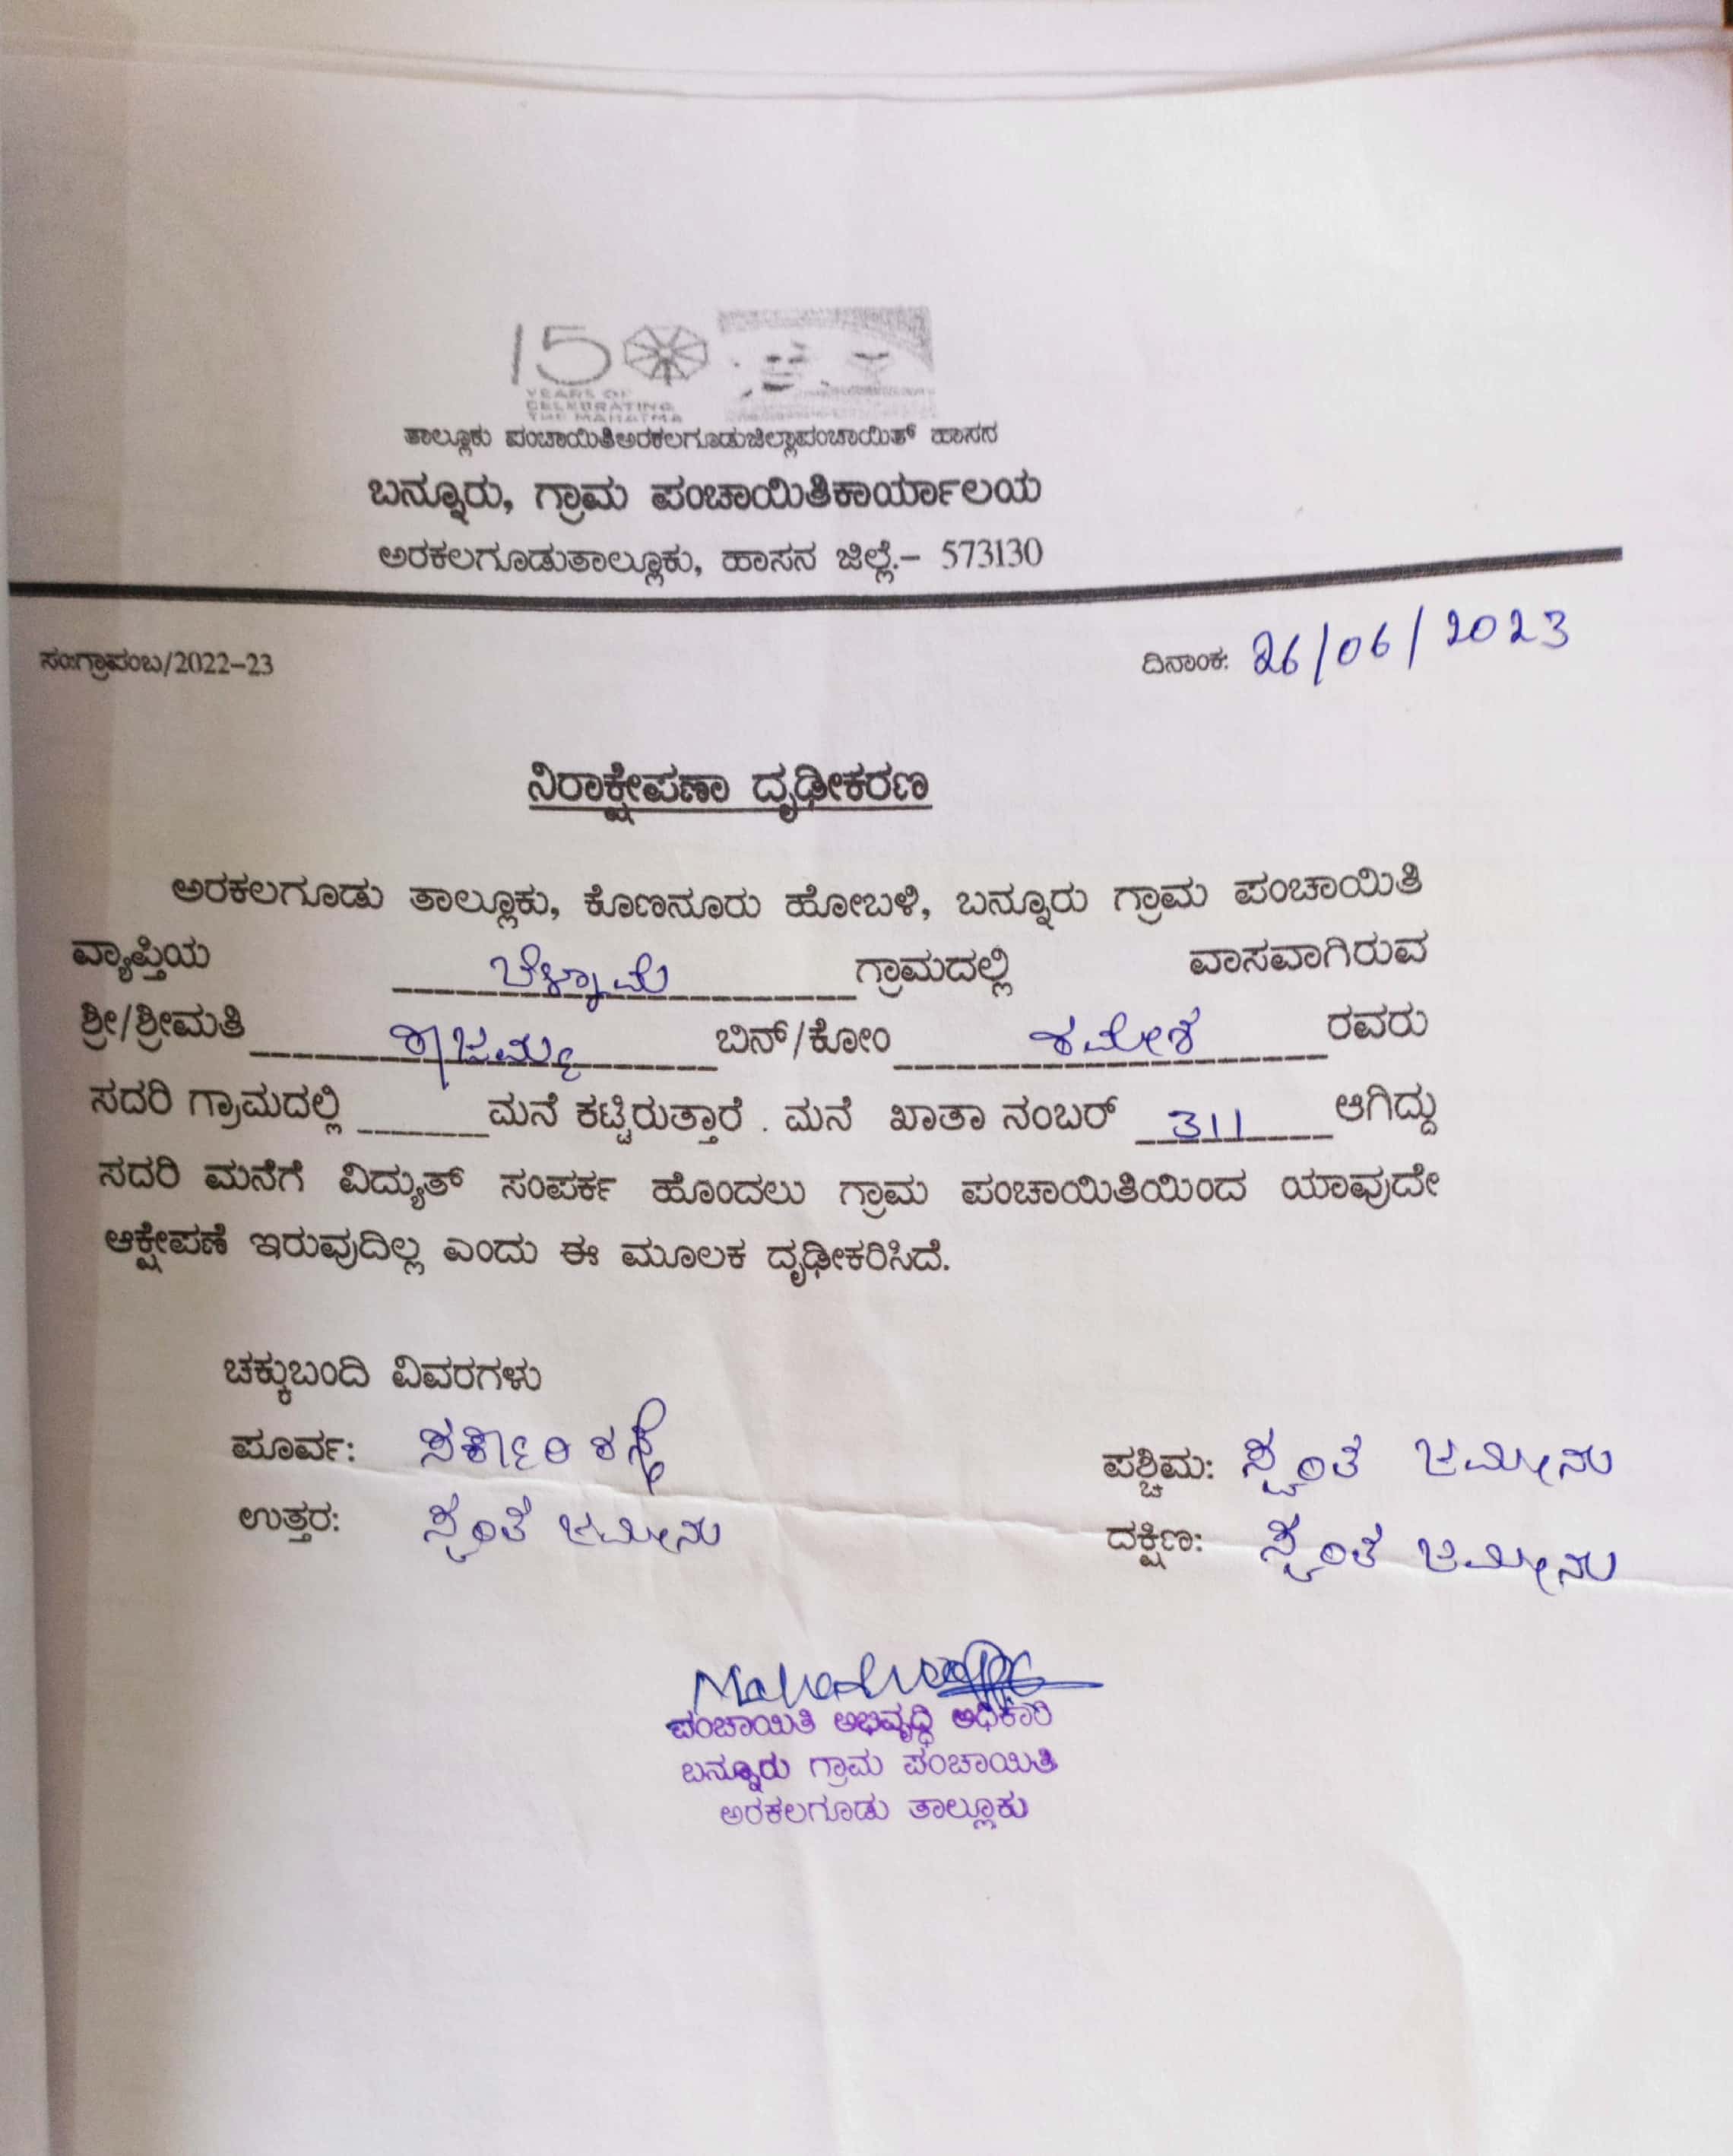 150
YEARS OF
CELEBRATING
THE MAHATMA
ತಾಲ್ಲೂಕು ಪಂಚಾಯಿತಿಅರಕಲಗೂಡುಜಿಲ್ಲಾಪಂಚಾಯಿತ್ ಹಾಸನ
ಬನ್ನೂರು, ಗ್ರಾಮ ಪಂಚಾಯಿತಿಕಾರ್ಯಾಲಯ
ಅರಕಲಗೂಡುತಾಲ್ಲೂಕು, ಹಾಸನ ಜಿಲ್ಲೆ.– 573130
ಸಂಗ್ರಾಪಂಬ/2022–23 ದಿನಾಂಕ: 26/06/2023
ನಿರಾಕ್ಷೇಪಣಾ ದೃಢೀಕರಣ
ಅರಕಲಗೂಡು ತಾಲ್ಲೂಕು, ಕೊಣನೂರು ಹೋಬಳಿ, ಬನ್ನೂರು ಗ್ರಾಮ ಪಂಚಾಯಿತಿ
ವ್ಯಾಪ್ತಿಯ ಗ್ರಾಮದಲ್ಲಿ ವಾಸವಾಗಿರುವ
ಶ್ರೀ/ಶ್ರೀಮತಿ ರಾಜಮ್ಮ ಬಿನ್/ಕೋಂ ರಮೇಶ ರವರು
ಸದರಿ ಗ್ರಾಮದಲ್ಲಿ ______ ಮನೆ ಕಟ್ಟಿರುತ್ತಾರೆ . ಮನೆ ಖಾತಾ ನಂಬರ್ 311 ಆಗಿದ್ದು
ಸದರಿ ಮನೆಗೆ ವಿದ್ಯುತ್ ಸಂಪರ್ಕ ಹೊಂದಲು ಗ್ರಾಮ ಪಂಚಾಯಿತಿಯಿಂದ ಯಾವುದೇ
ಆಕ್ಷೇಪಣೆ ಇರುವುದಿಲ್ಲ ಎಂದು ಈ ಮೂಲಕ ದೃಢೀಕರಿಸಿದೆ.
ಚಕ್ಕುಬಂದಿ ವಿವರಗಳು
ಪೂರ್ವ: ಸರ್ಕಾರಿ ರಸ್ತೆ ಪಶ್ಚಿಮ: ಸ್ವಂತ ಜಮೀನು
ಉತ್ತರ: ಸ್ವಂತ ಜಮೀನು ದಕ್ಷಿಣ: ಸ್ವಂತ ಜಮೀನು
ಪಂಚಾಯಿತಿ ಅಭಿವೃದ್ಧಿ ಅಧಿಕಾರಿ
ಬನ್ನೂರು ಗ್ರಾಮ ಪಂಚಾಯಿತಿ
ಅರಕಲಗೂಡು ತಾಲ್ಲೂಕು